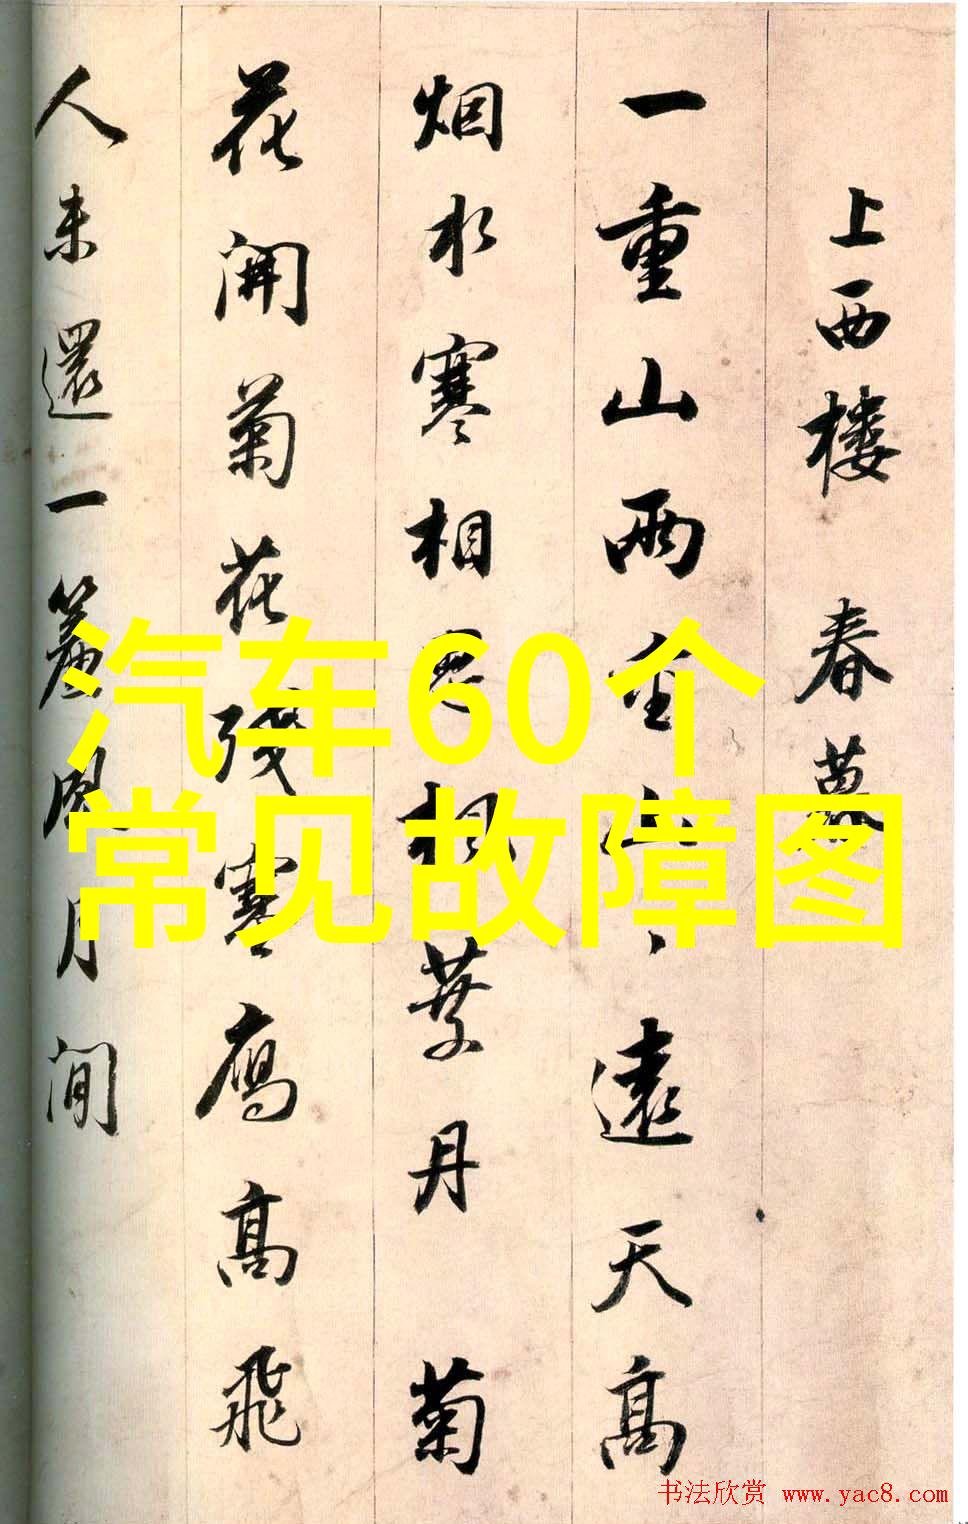 上西楼 春暮
一重山兩重山、遠天高
烟水寒相思楓葉丹 菊
花開菊花殘寒鴈高飛
人未還一簾風月閒
汽车60个
常见故障图
书法欣赏 www.yac8.com